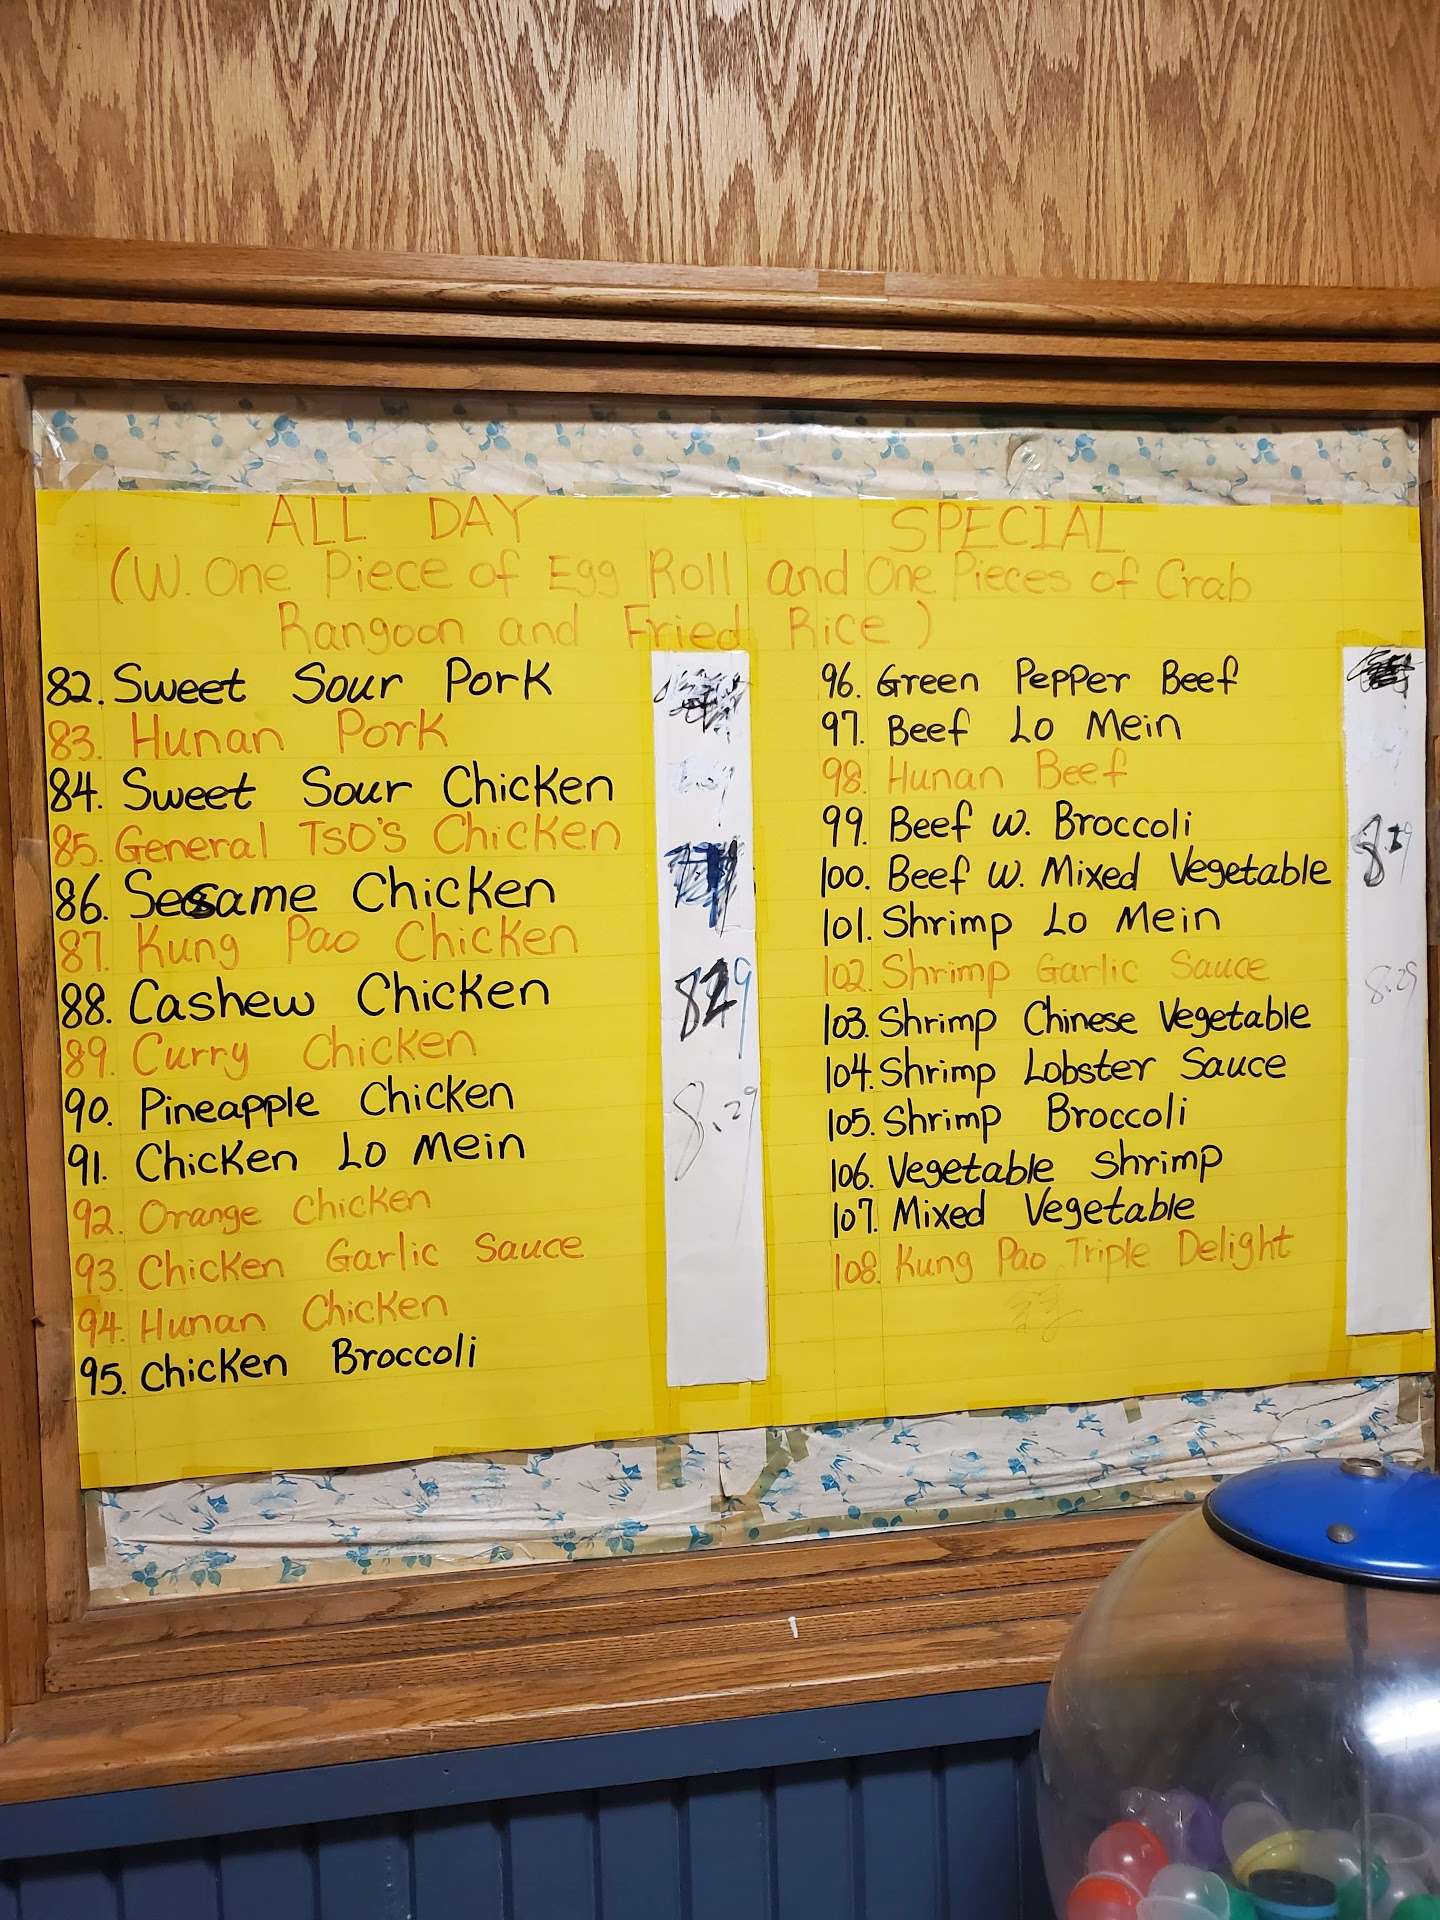 ALL DAY SPECIAL
(W. One Piece of Egg Roll and One Pieces of Crab
Rangoon and Fried Rice)
82. Sweet Sour Pork
83. Hunan Pork
84. Sweet Sour Chicken
85. General TSO'S Chicken
86. Sesame Chicken
87. Kung Pao Chicken
88. Cashew Chicken
89. Curry Chicken
90. Pineapple Chicken
91. Chicken Lo Mein
92. Orange Chicken
93. Chicken Garlic Sauce
94. Hunan Chicken
95. Chicken Broccoli
829
8.29
96. Green Pepper Beef
97. Beef Lo Mein
98. Hunan Beef
99. Beef W. Broccoli
100. Beef W. Mixed Vegetable
101. Shrimp Lo Mein
102. Shrimp Garlic Sauce
103. Shrimp Chinese Vegetable
104. Shrimp Lobster Sauce
105. Shrimp Broccoli
106. Vegetable Shrimp
107. Mixed Vegetable
108. Kung Pao Triple Delight
8.29